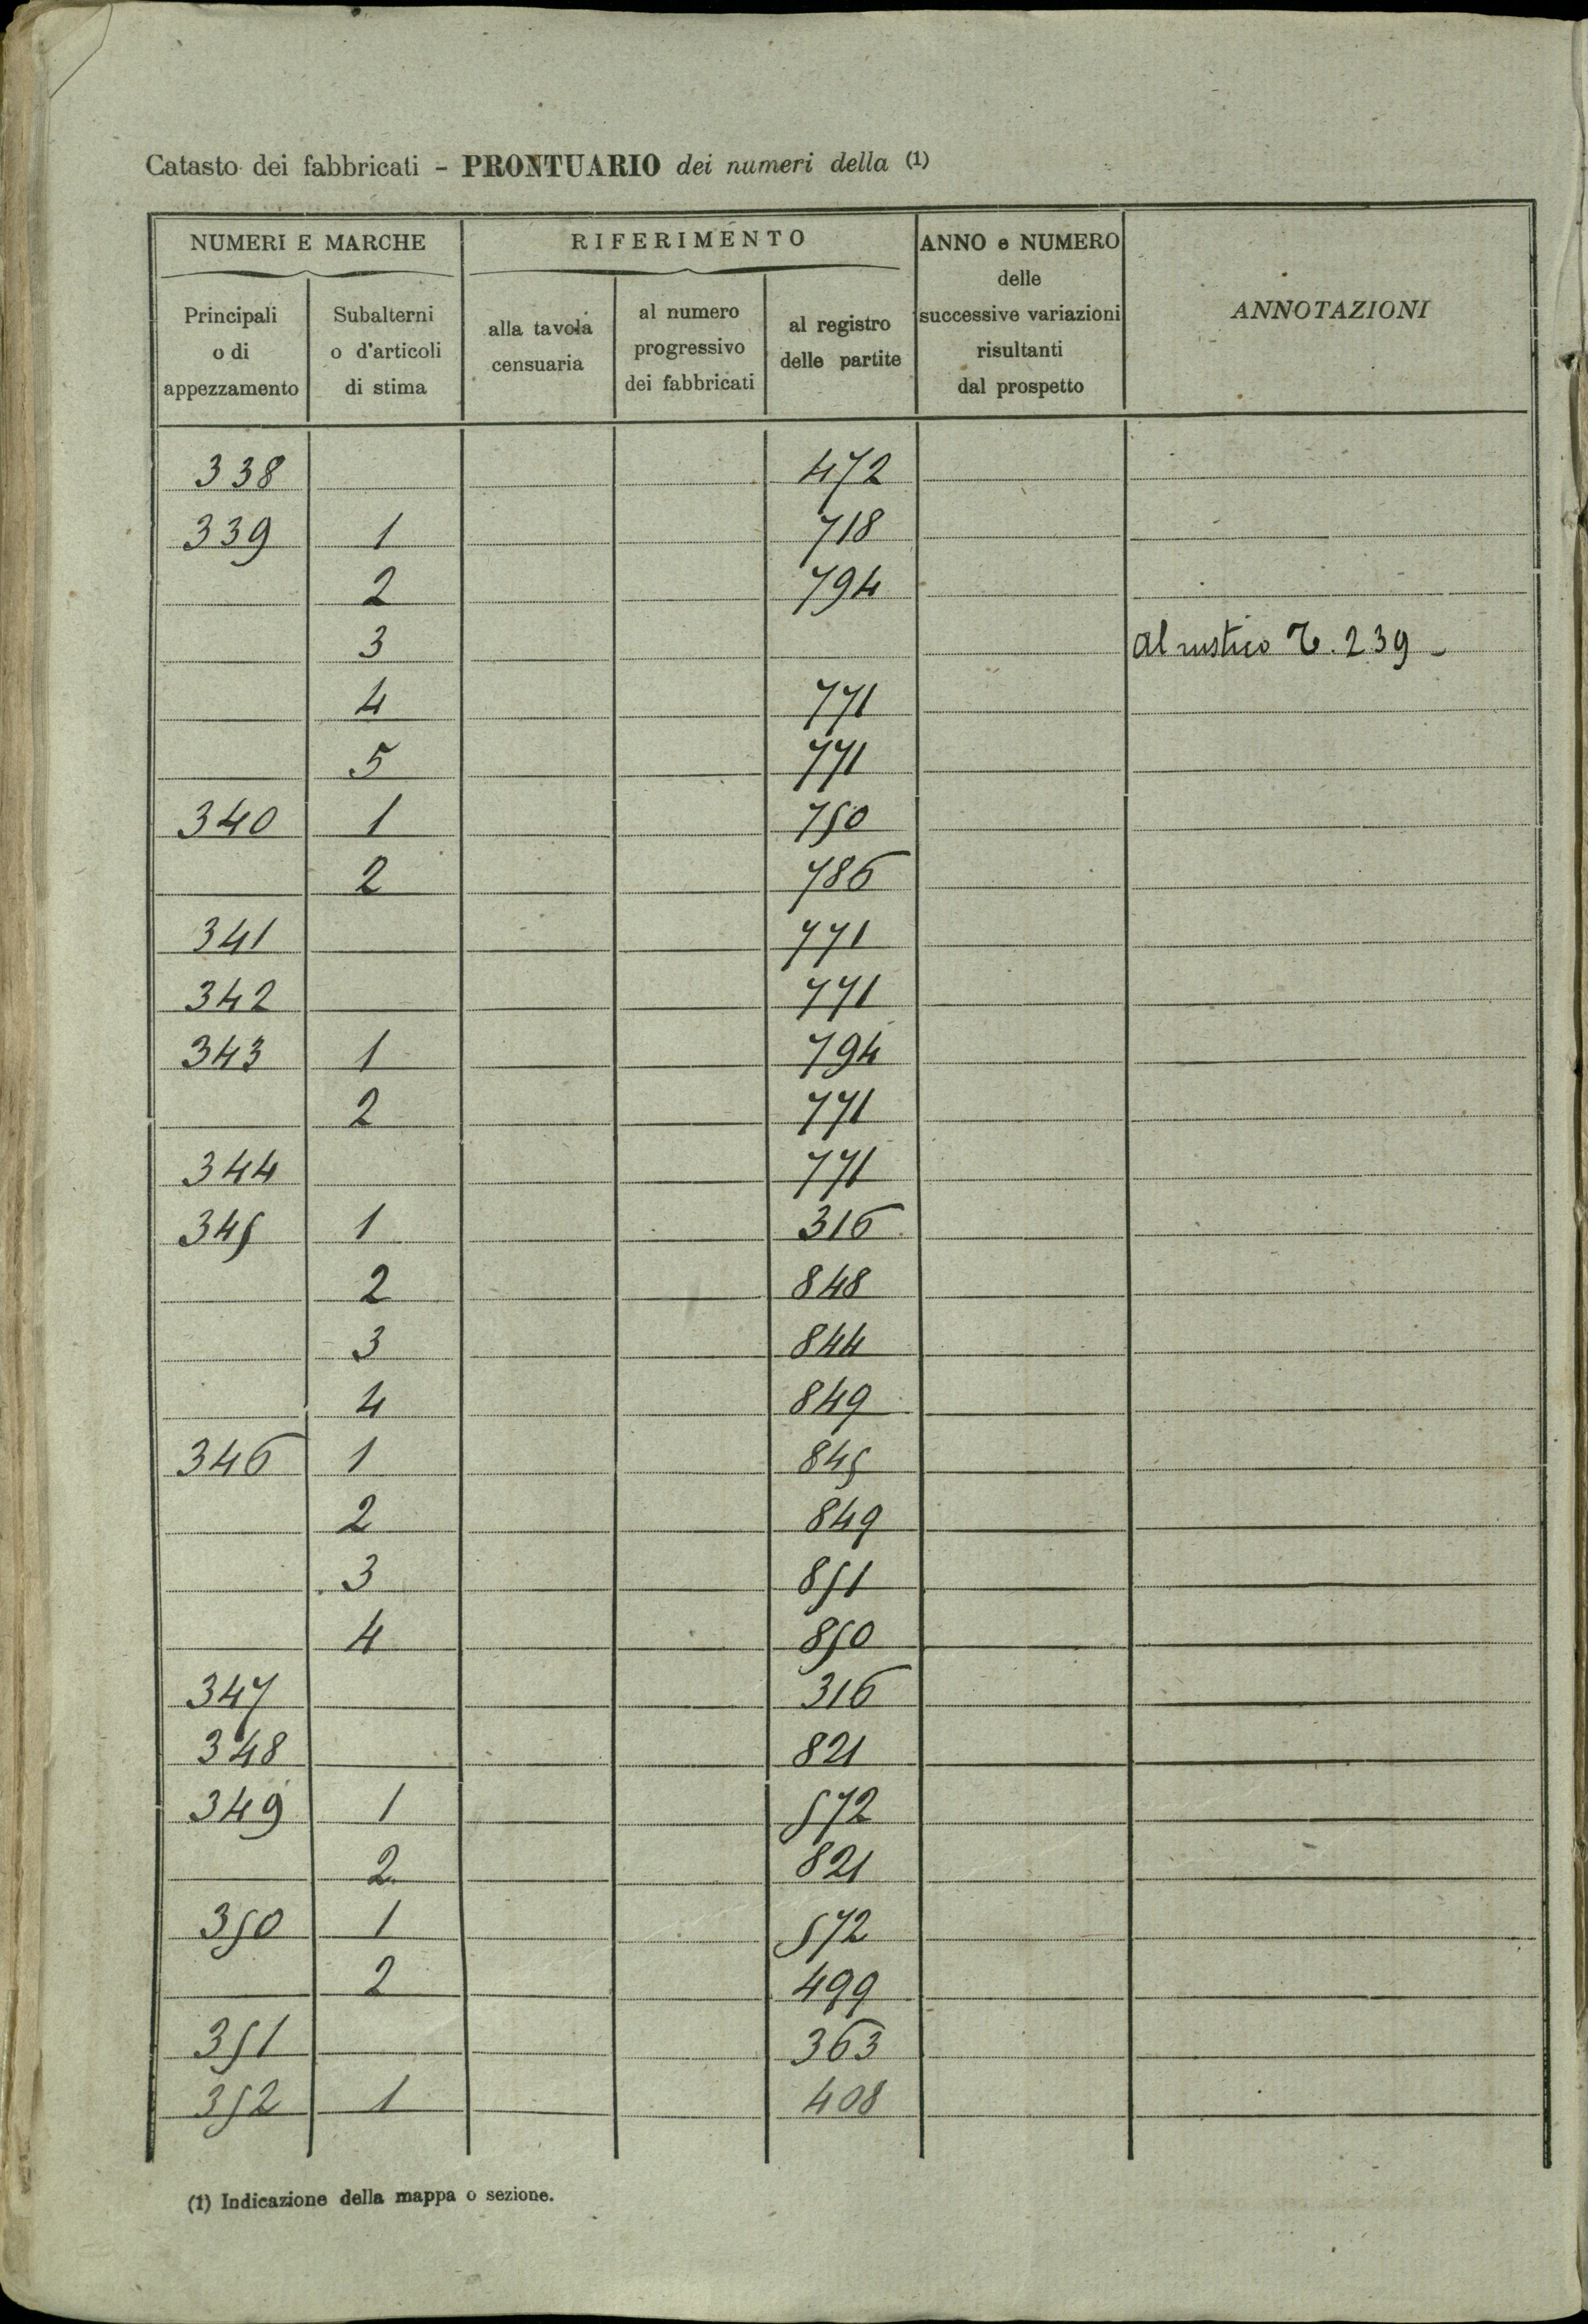 Catasto dei fabbricati - PRONTUARIO dei numeri della (1)
NUMERI E MARCHE
RIFERIMENTO
ANNO e NUMERO
delle
successive variazioni
risultanti
dal prospetto
ANNOTAZIONI
Principali
o di
appezzamento
Subalterni
o d'articoli
di stima
alla tavola
censuaria
al numero
progressivo
dei fabbricati
al registro
delle partite
338 472
339 1 718
2 794
3 Al rustico T. 239
4 771
5 771
340 1 750
2 786
341 771
342 771
343 1 794
2 771
344 771
345 1 316
2 848
3 844
4 849
346 1 845
2 849
3 851
4 850
347 316
348 821
349 1 572
2 821
350 1 572
2 499
351 363
352 1 408
(1) Indicazione della mappa o sezione.